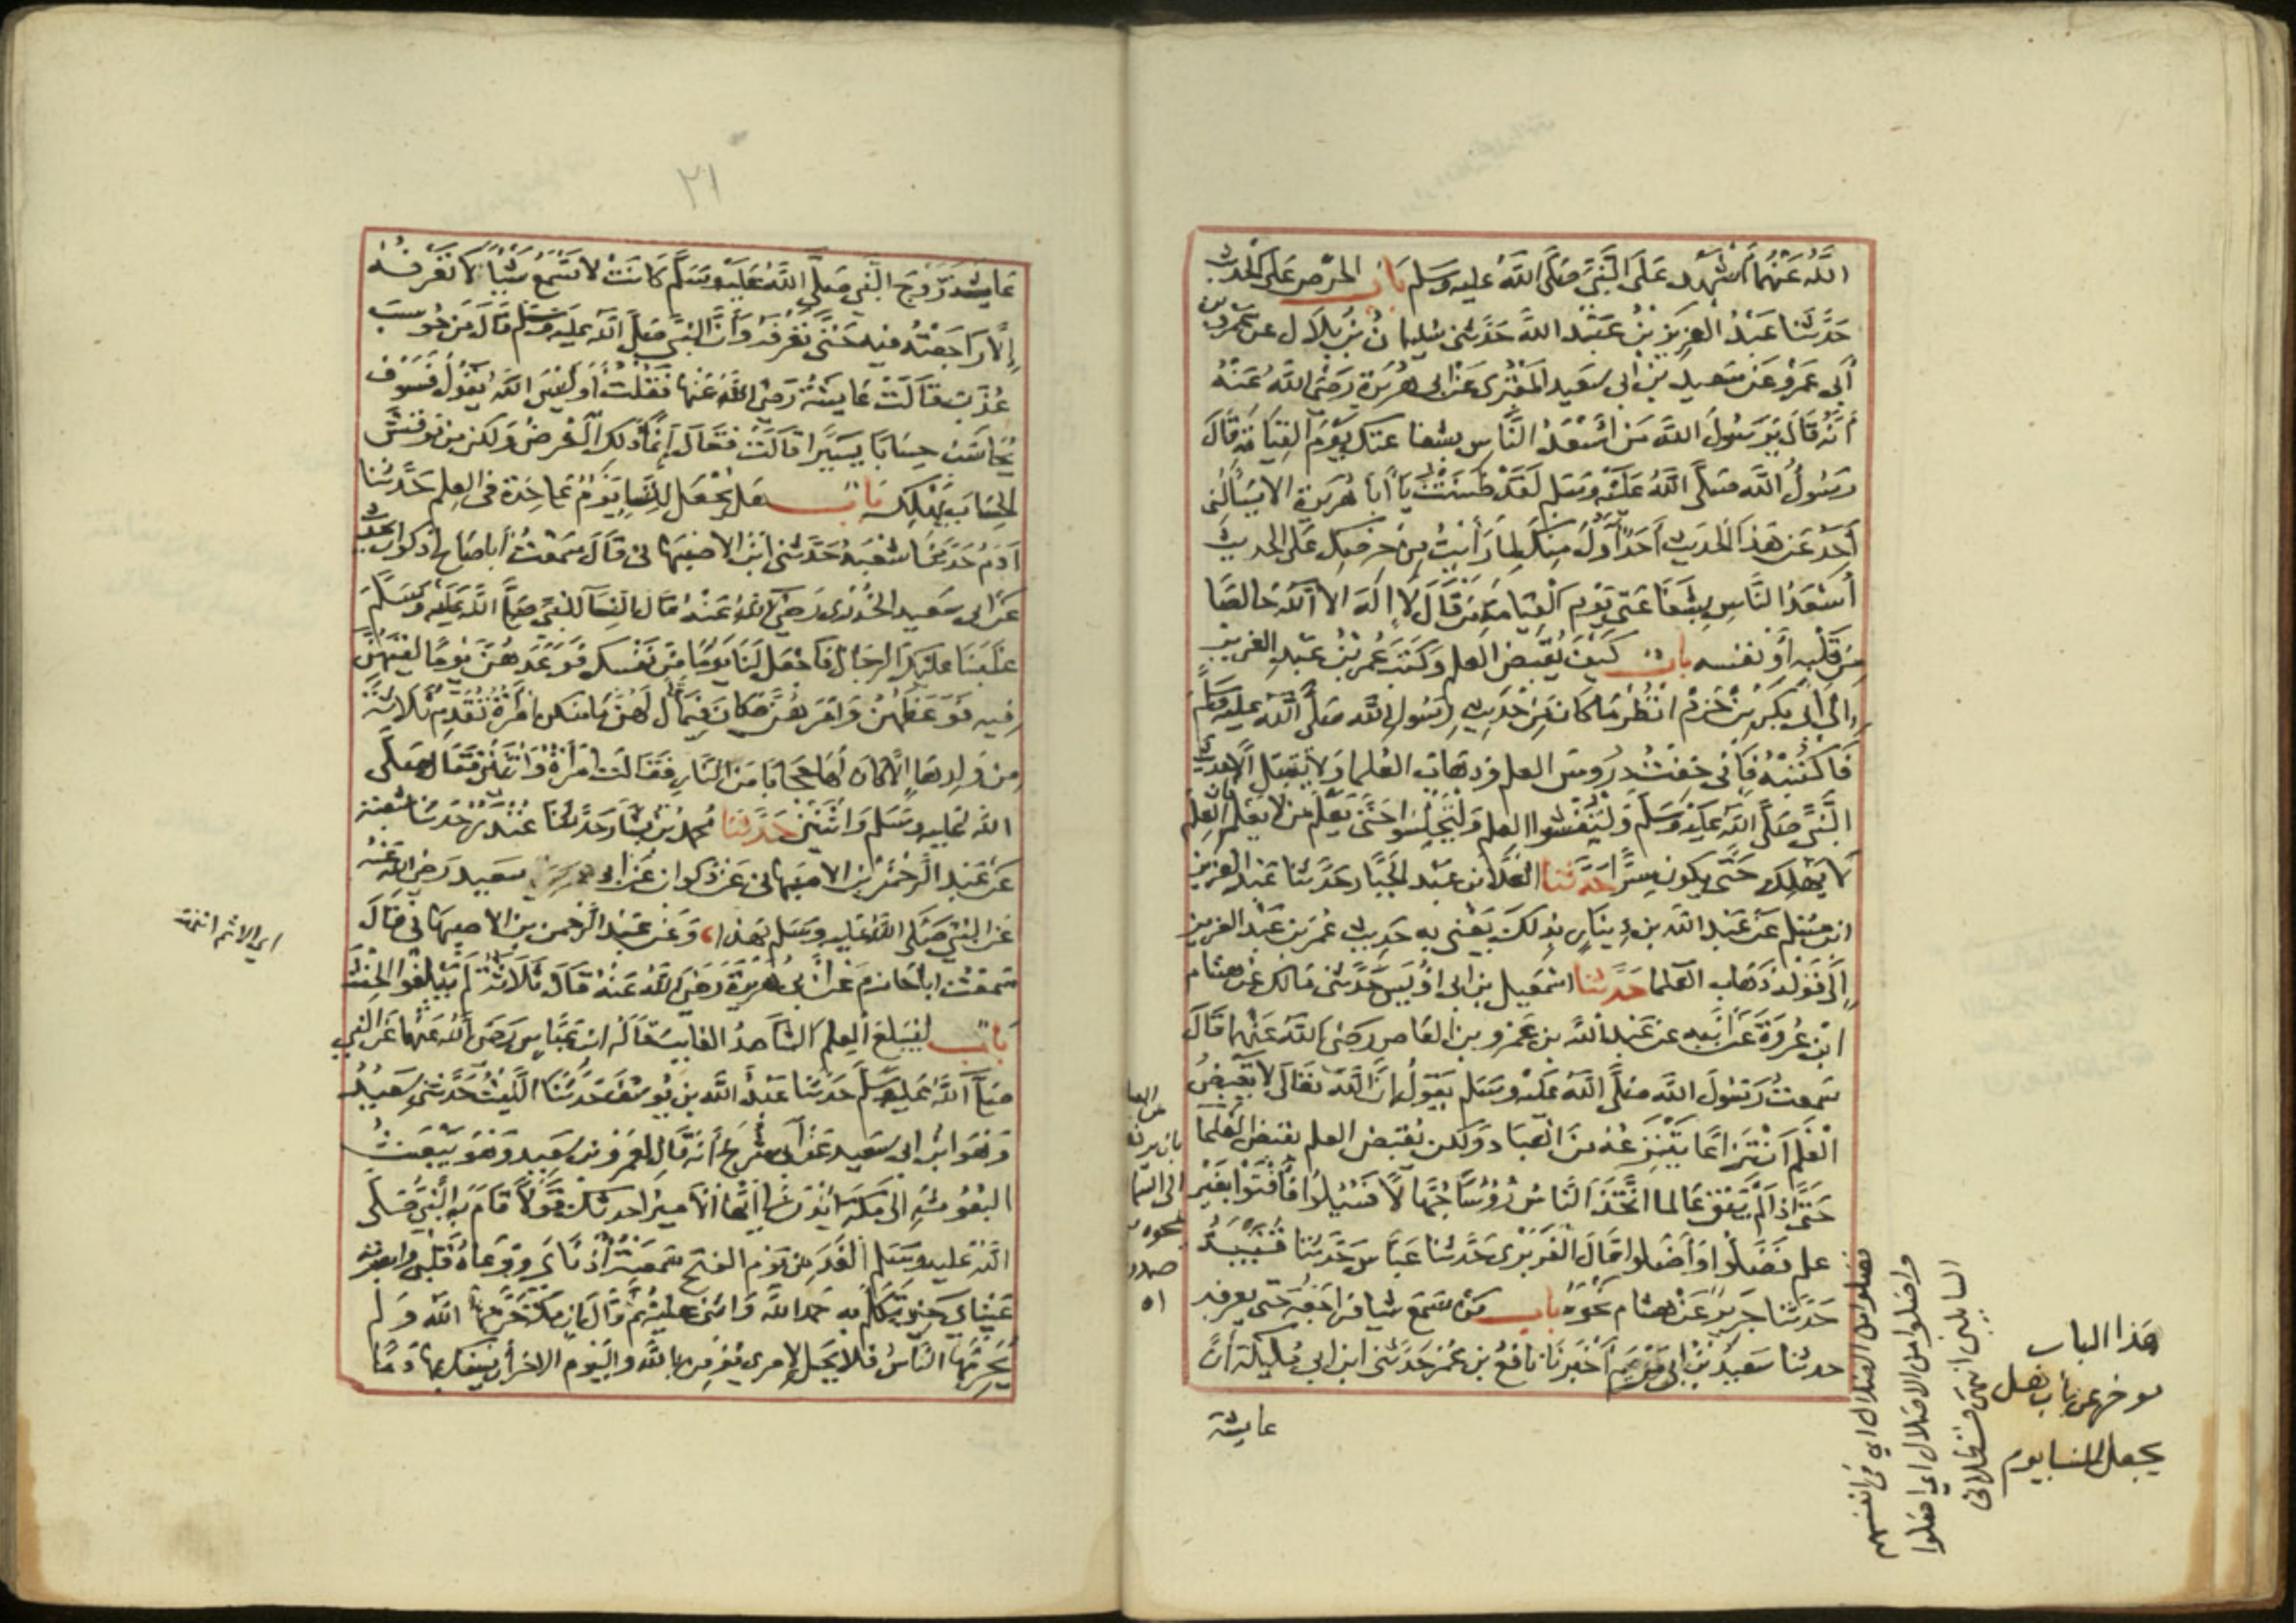 الله عَنْهُمَا أَشْهَدُ عَلَى النَّبِيِّ صَلَّى اللَّهُ عليه وسلم بَابُ الحرص على الحديث
حَدَّثَنَا عَبْدُ العَزِيزِ بْنُ عَبْدِ اللَّهِ حَدَّثَنِي سُلَيمانُ بْنُ بِلَال عن عمرو بن
أبي عَمْرٍو عَنْ سَعِيدِ بْنِ ابى سعيد المَقْبُرى عَنْ ابى هُرَيرَة رَضِىَ اللَّهُ عَنْهُ
أَنَّهُ قَالَ يَرَسُولَ اللَّه مَنْ أَسْعَدُ النَّاسِ بشفاعتك يَوْمَ القِيَامَةِ قَالَ
رَسُولُ اللَّه صَلَّى اللَّهُ عَلَيْهِ وَسَلم لَقَدْ ظَنَنْتُ يَا أَبَا هُرَيرَة ان لا يسألنى
أَحَدٌ عَنْ هَذَا الْحَدِيث أَحَدٌ أَوَّلُ مِنكَ لِمَا رَأَيْتُ مِنْ حِرْصِكَ عَلَى الحديث
أَسْعَدُ النَّاسِ بِشَفَاعَتِى يَوْمَ الْقِيَامَةِ مَنْ قَالَ لَا إِلَهَ الا اللَّه خَالصًا
مِنْ قَلْبِهِ أَوْ نفسه باب كَيْفَ يُقْبَض العلم وَكَتَبَ عُمَرُ بْنُ عَبْدِ العزيز
إِلَى أَبِى بَكْرِ بْنِ حَزْمٍ انْظُرْ مَا كَانَ مِنْ حَدِيثِ رَسُولِ اللَّه صَلَّى اللَّه عليه وسلم
فَاكْتُبْهُ فَإِنِّى خِفْتُ دُرُوسَ العلم وذهاب العُلما وَلَا يُقْبَلُ الا حديث
النَّبِىِّ صَلَّى اللَّه عَلَيْهِ وَسَلَّم وَلْيُفْشُوا العلم وَلْيَجْلِسُوا حَتَّى يُعَلَّمَ مَنْ لا يعلم فان العلم
لَا يَهْلِكُ حَتَّى يكون سِرًّا حَدَّثَنَا العَلَا بن عَبْد الجَبَّار حَدَّثَنَا عَبْدُ العزيز
ابْن مُسْلم عَنْ عَبْدِ اللَّه بن دِينَارٍ بِذلك يَعْنِى به حَدِيث عُمَرَ بْنِ عَبْد العزيز
إِلَى قَوْلِهِ ذَهَاب العلما حَدَّثَنَا اسْمَعِيل بن ابى أُوَيس حَدَّثَنِى مَالك عَنْ هشام
ابْن عُرْوَةَ عَنْ أَبِيهِ عن عَبْدِ اللَّه بن عَمْرو بن العَاص رَضِىَ اللَّهُ عَنْهُما قَالَ
سَمِعْتُ رَسُولَ اللَّه صَلَّى اللَّه عَلَيْهِ وسَلم يَقُولُ إِنَّ اللَّهَ تَعَالَى لَا يَقْبِضُ
الْعِلْمَ انْتِزَاعًا يَنْتَزِعُهُ مِنَ العباد وَلَكن يَقْبِضُ العلم بِقَبْضِ العُلَمَا
حَتَّى إِذَا لَمْ يُبْقِ عَالما اتَّخَذَ النَّاسُ رُؤُسًا جُهَّالًا فَسُئِلُوا فَأَفْتَوْا بِغَيْرِ
علم فَضَلُّوا وَأَضَلوا قَالَ الفَرَبْرِى حَدَّثَنَا عَبَّاس حَدَّثنَا قُتَيْبَةُ
حَدَّثَنَا جَرِيرٌ عَنْ هشام نَحْوَهُ باب مَنْ سَمِعَ شيا فراجَعَهُ حَتى يعرفه
حدثنا سَعِيدُ بْنُ ابى مَرْيَمَ أَخْبَرَنَا نَافِعُ بن عُمَرَ حَدَّثَنِى ابن ابى مُلَيكَة أَنَّ
عايشة
هذا الباب
موخر عن باب هل
يجعل للنسا يوم
فضلوا من الضلال اي في انفسهم
واضلوا من الاضلال اي اضلوا
السايلين انتهى قسطلانى
٢١
عَايِشَة زَوْجَ النَّبِى صَلَّى اللَّهُ عَلَيْهِ وَسَلَّم كَانَتْ لا تَسْمَعُ شَيْئًا لَا تَعْرِفُهُ
إِلَّا رَاجَعَتْ فيه حَتَّى تَعْرِفَهُ وَأَنَّ النَّبِىَّ صَلَّى اللَّه عليه وَسَلم قَالَ مَنْ حُوسِبَ
عُذِّبَ قَالَتْ عَايِشَةُ رَضِىَ اللَّه عَنْها فَقُلْتُ أَوَلَيْسَ اللَّهُ يَقُولُ فَسَوْفَ
يُحَاسَبُ حِسَابًا يَسِيرًا قَالَتْ فَقَالَ إِنَّمَا ذَلِك الْعَرْضُ وَلَكن مَن نُوقِشَ
الحِسَابَ يَهْلِك بَاب هَلْ يُجْعَل لِلنِّسَا يَوْمٌ عَلَى حِدَة فى العِلم حَدَّثَنَا
آدَمُ حَدَّثَنَا شُعْبَةُ حَدَّثَنِى ابْنُ الاصْبَهانى قَالَ سَمِعْتُ أَبَا صَالح ذكوان يحدث
عَنْ أبى سَعِيد الخُدْرِى رَضِىَ اللَّهُ عَنْهُ قَالَ قال النِّسَآ لِلنَّبِىّ صَلَّى اللَّه عَلَيْهِ وَسَلَّم
غَلَبَنَا عَلَيْكَ الرِّجَالُ فَاجْعَل لَنَا يَوْمًا مِنْ نَفْسِكَ فَوَعَدَهُنَّ يَوْمًا لَقِيَهُنَّ
فِيهِ فَوَعَظَهُنَّ وَأَمَرَهُنَّ فَكَانَ فِيمَا قَالَ لَهُنَّ مَا مِنكن امْرَأَةٌ تُقَدِّمُ ثَلَاثَةً
مِنْ وَلَدِهَا إِلَّا كان لَهَا حِجَابًا مِنَ النَّارِ فَقَالَتِ امْرَأَةٌ وَاثْنَيْنِ فَقَالَ صَلَّى
اللَّه عَليه وسَلم وَاثْنَيْنِ حَدَّثَنَا مُحَمَّد بْنُ بَشَّار حَدَّثَنَا غُنْدَرٌ حَدَّثَنَا شُعبَة
عَنْ عَبْدِ الرَّحْمَنِ بن الاصبهانى عَنْ ذكوان عَنْ ابى سَعِيد رَضِىَ اللَّه عَنْه
عَنِ النَّبِىِّ صَلَّى اللَّهُ عَلَيهِ وسَلم بِهَذَا وَعَنْ عَبْدِ الرَّحمن بن الاصبهانى قَالَ
سَمِعْتُ ابَا حَازم عَنْ أَبِى هُرَيْرَة رَضِىَ اللَّهُ عَنْهُ قَالَ ثَلَاثَةً لَمْ يَبْلُغُوا الحِنْثَ
بَابُ لِيُبَلِّغ العِلمَ الشَّاهِدُ الغَايبَ قَالَهُ ابن عَبَّاس رَضِىَ اللَّه عَنْهما عَنِ النبى
صَلَّى اللَّهُ عَليه وسَلَّم حَدَّثَنَا عَبْدُ اللَّه بن يُوسُفَ حَدَّثَنَا اللَّيْثُ حَدَّثَنِى سَعِيدٌ
وَهُوَ ابْن ابى سَعيد عَنْ أَبِى شُرَيحٍ أَنَّهُ قَالَ لِعَمْرِو بن سَعِيد وَهُوَ يَبْعَثُ
البُعُوثَ إِلَى مَكَّةَ ائْذَنْ لى أَيُّهَا الامِيرُ أحدثك قَوْلًا قَامَ بِهِ النَّبِىُّ صَلَّى
اللَّهُ عَليه وسَلم الغَدَ مِن يَوْمِ الفتح سَمِعَتْهُ أُذُنَاىَ وَوَعَاهُ قَلْبِى وابصرته
عَيْنَاىَ حِينَ تَكَلَّمَ بِهِ حَمِدَ اللَّهَ وَاثنى عليه ثُمَّ قَالَ إِن مَكَّةَ حَرَّمَهَا اللَّه وَلَم
يُحَرِّمْهَا النَّاسُ فَلَا يَحِلُّ لامرى يُؤْمِنُ بِاللَّه واليَوْمِ الآخر أَنْ يَسْفِكَ بِهَا دَمًا
اي الاثم انتهى